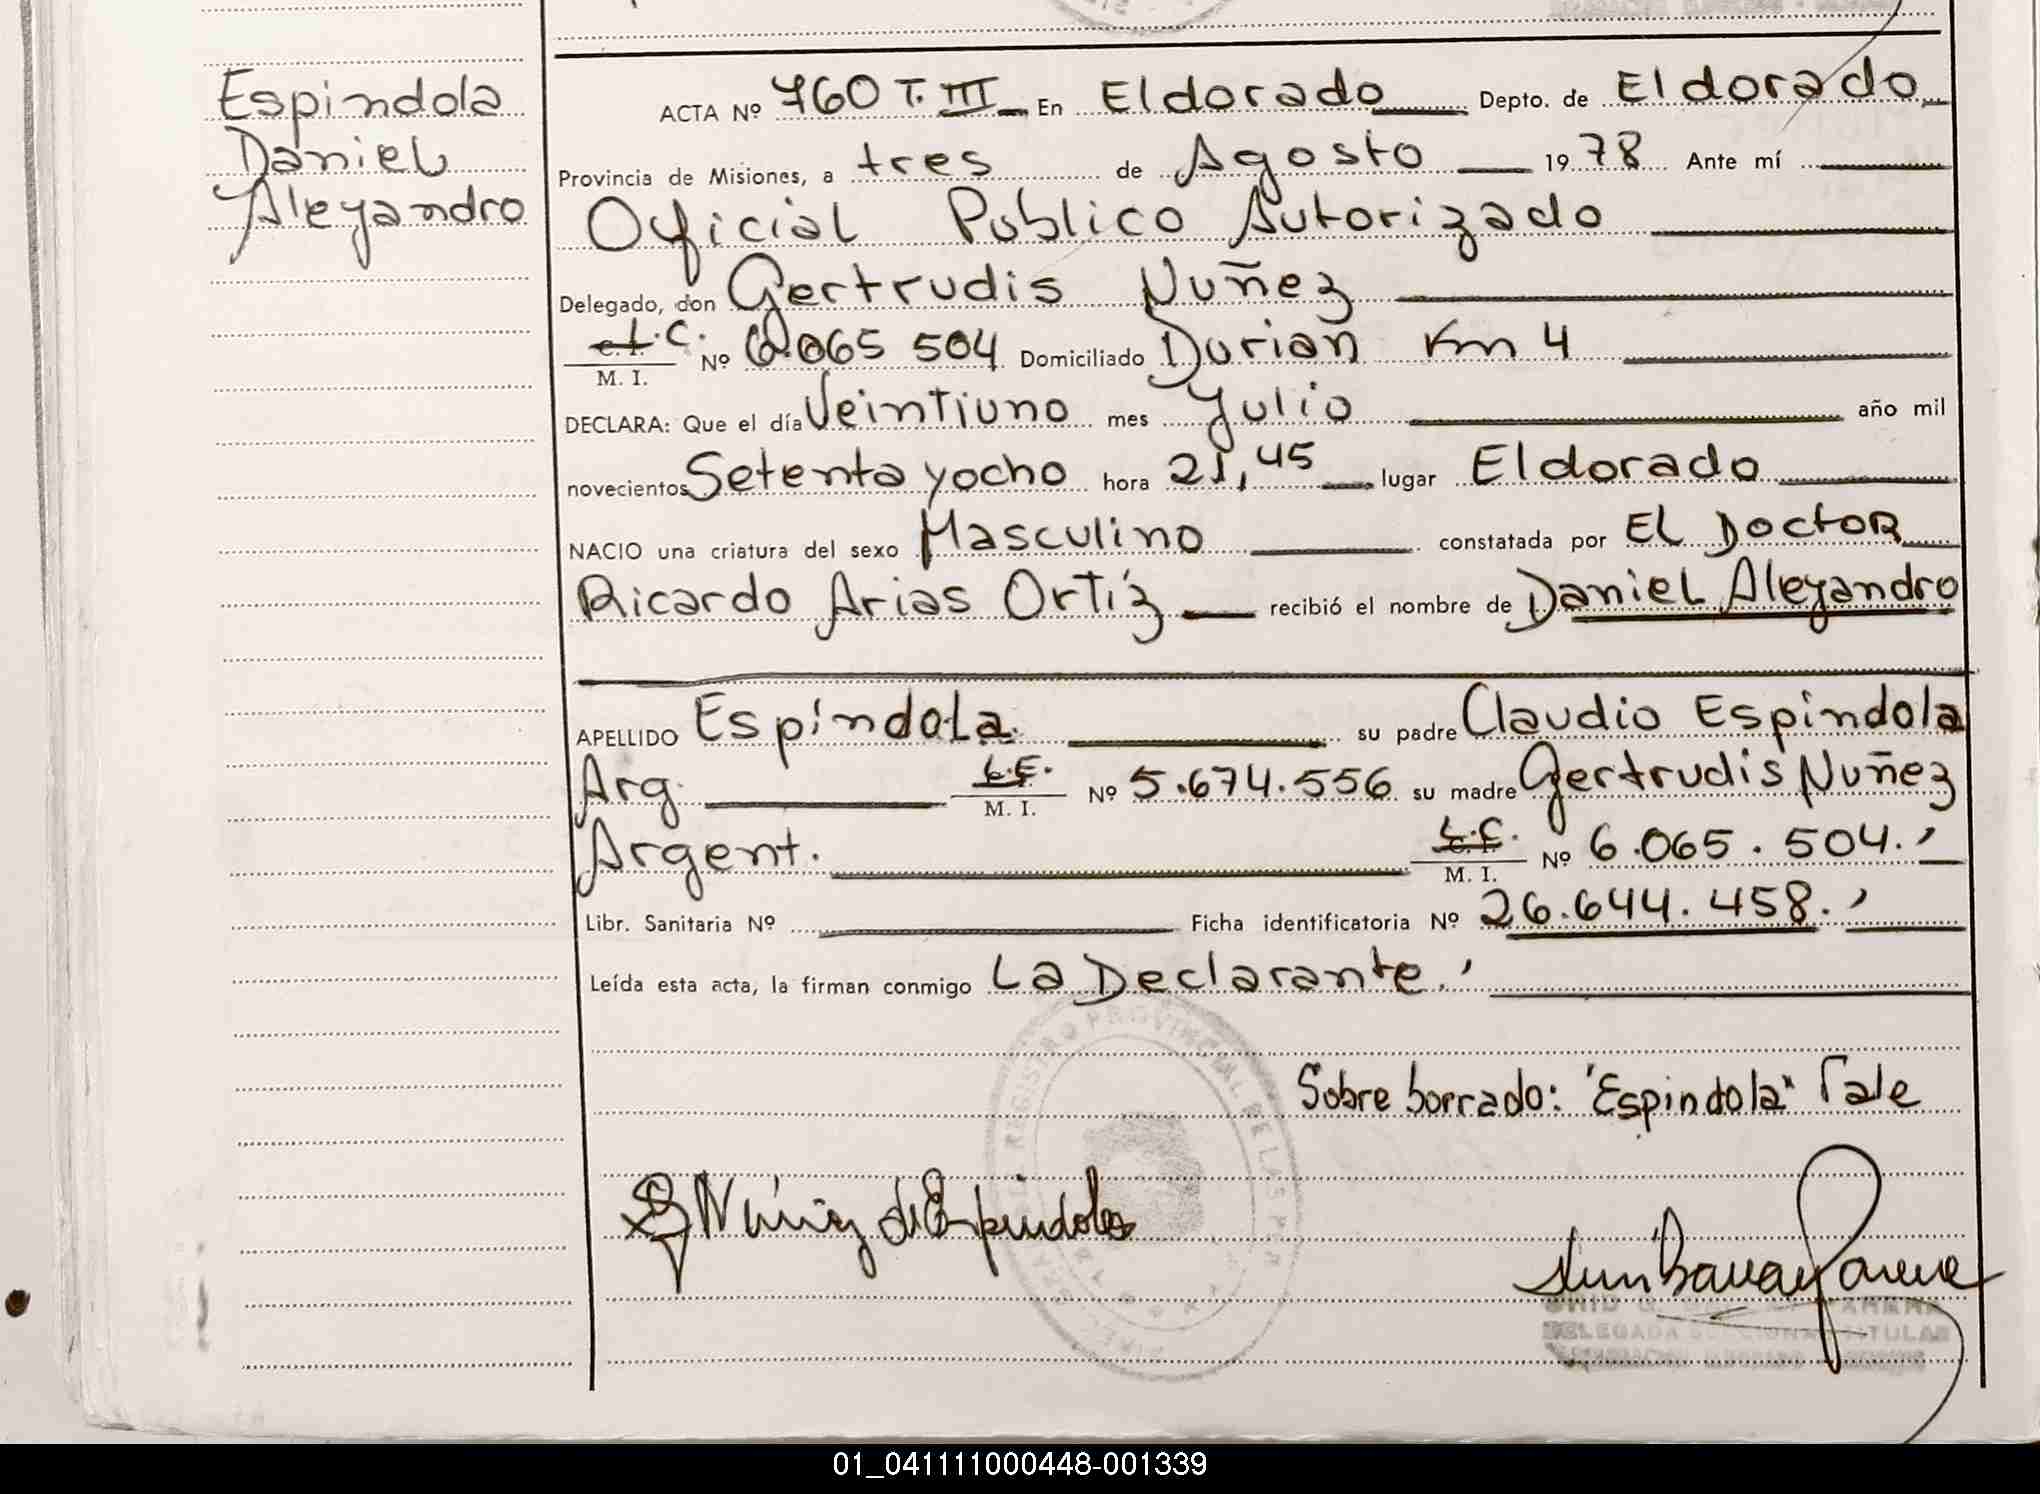 Espindola
Daniel
Alejandro
ACTA Nº 760 T. III En Eldorado Depto. de Eldorado
Provincia de Misiones, a tres de Agosto 1978 Ante mí
Oficial Publico Autorizado
Delegado, don Gertrudis Nuñez
L.C. M. I. Nº 6.065 504 Domiciliado Durian Km 4
DECLARA: Que el día Veintiuno mes Julio año mil
novecientos Setenta y ocho hora 21,45 lugar Eldorado
NACIO una criatura del sexo Masculino constatada por El Doctor
Ricardo Arias Ortíz recibió el nombre de Daniel Alejandro
APELLIDO Espíndola su padre Claudio Espíndola
Arg. L.E. M. I. Nº 5.674.556 su madre Gertrudis Nuñez
Argent. L.C. M. I. Nº 6.065.504.
Libr. Sanitaria Nº Ficha identificatoria Nº 26.644.458.
Leída esta acta, la firman conmigo La Declarante.
REGISTRO PROVINCIAL DE LAS PER
Sobre borrado: "Espindola" Vale
G Núñez de Espindola
DELEGADA SECCIONAL TITULAR
01_041111000448-001339